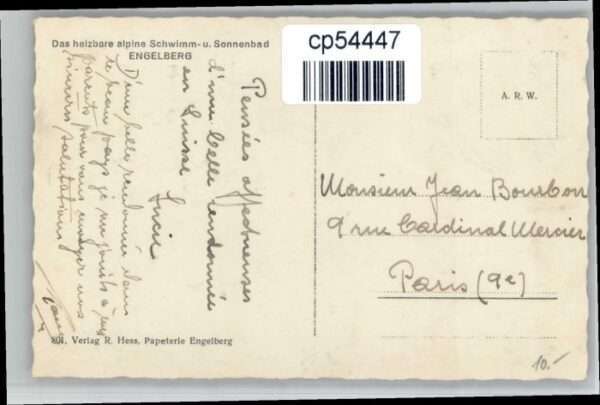 Das heizbare alpine Schwimm- u. Sonnenbad
ENGELBERG
cp54447
A. R. W.
Pensées affectueuses
d'une belle randonnée
en Suisse
Lucie
D'une belle randonnée dans
le beau pays je me joints à mes
parents pour vous envoyer nos
sincères salutations
Monsieur Jean Bourbon
9 rue Cardinal Mercier
Paris (9e)
801. Verlag R. Hess, Papeterie Engelberg
10.-